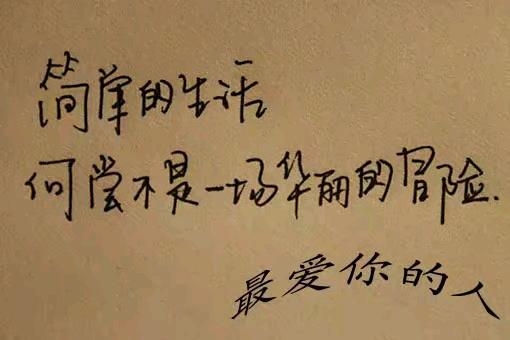 简单的生活
何尝不是一场华丽的冒险.
最爱你的人